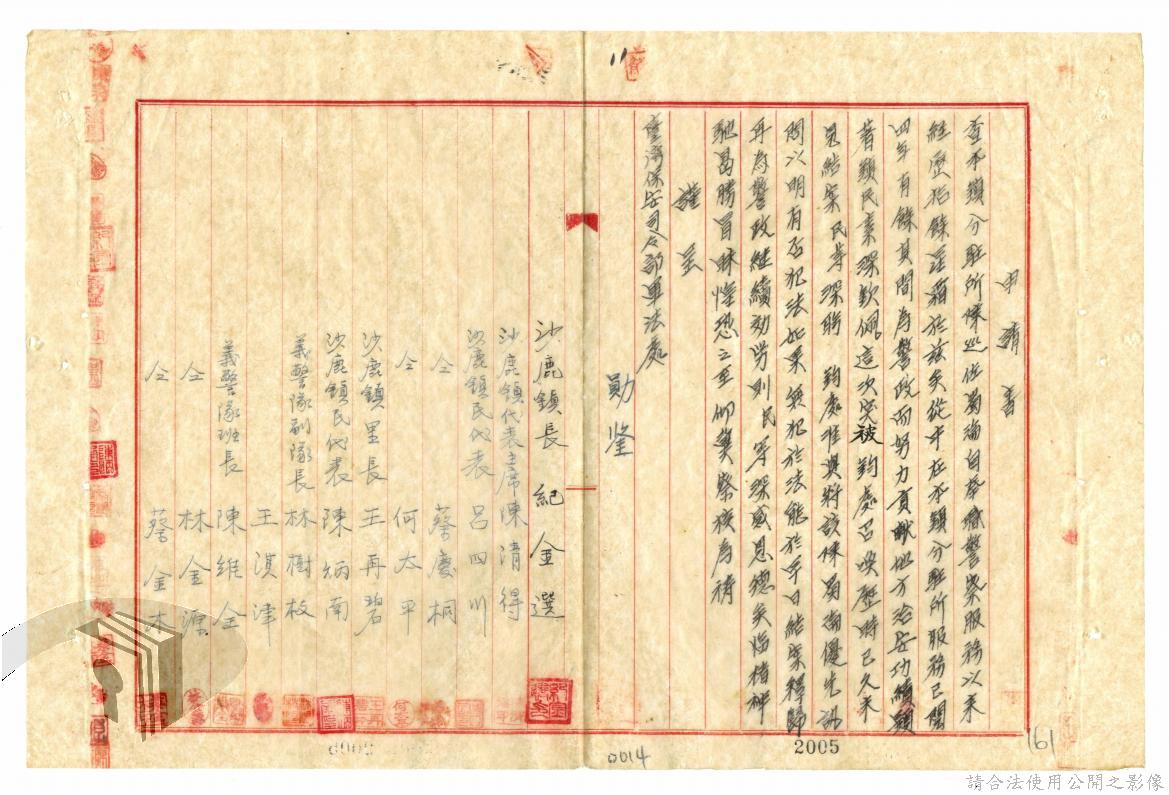 申請書
查本鎮分駐所陳巡佐蜀海自奉職警察服務以來
經歷拾餘星霜於茲矣從中在本鎮分駐所服務已閱
四年有餘其間為警政而努力貢獻地方治安功績顯
著鎮民素深欽佩這次突被鈞處召喚歷時已久未
見結案民等深盼 鈞處准與將該陳蜀海優先訊
問以明有否犯法如果無犯於法能於早日結案釋歸
再為警政繼續効勞則民等深感恩德矣臨楮神
馳曷勝冒昧惶恐之至仰冀察核為禱
謹呈
臺灣保安司令部軍法處
勛鑒
沙鹿鎮長 紀金選
沙鹿鎮代表主席 陳清得
沙鹿鎮民代表 呂四川
仝 蔡慶桐
仝 何太平
沙鹿鎮里長 王再碧
沙鹿鎮民代表 陳炳南
義警隊副隊長 林樹枝
王淇津
義警隊班長 陳維全
仝 林金源
仝 蔡金木
11
0014
2005
161
請合法使用公開之影像